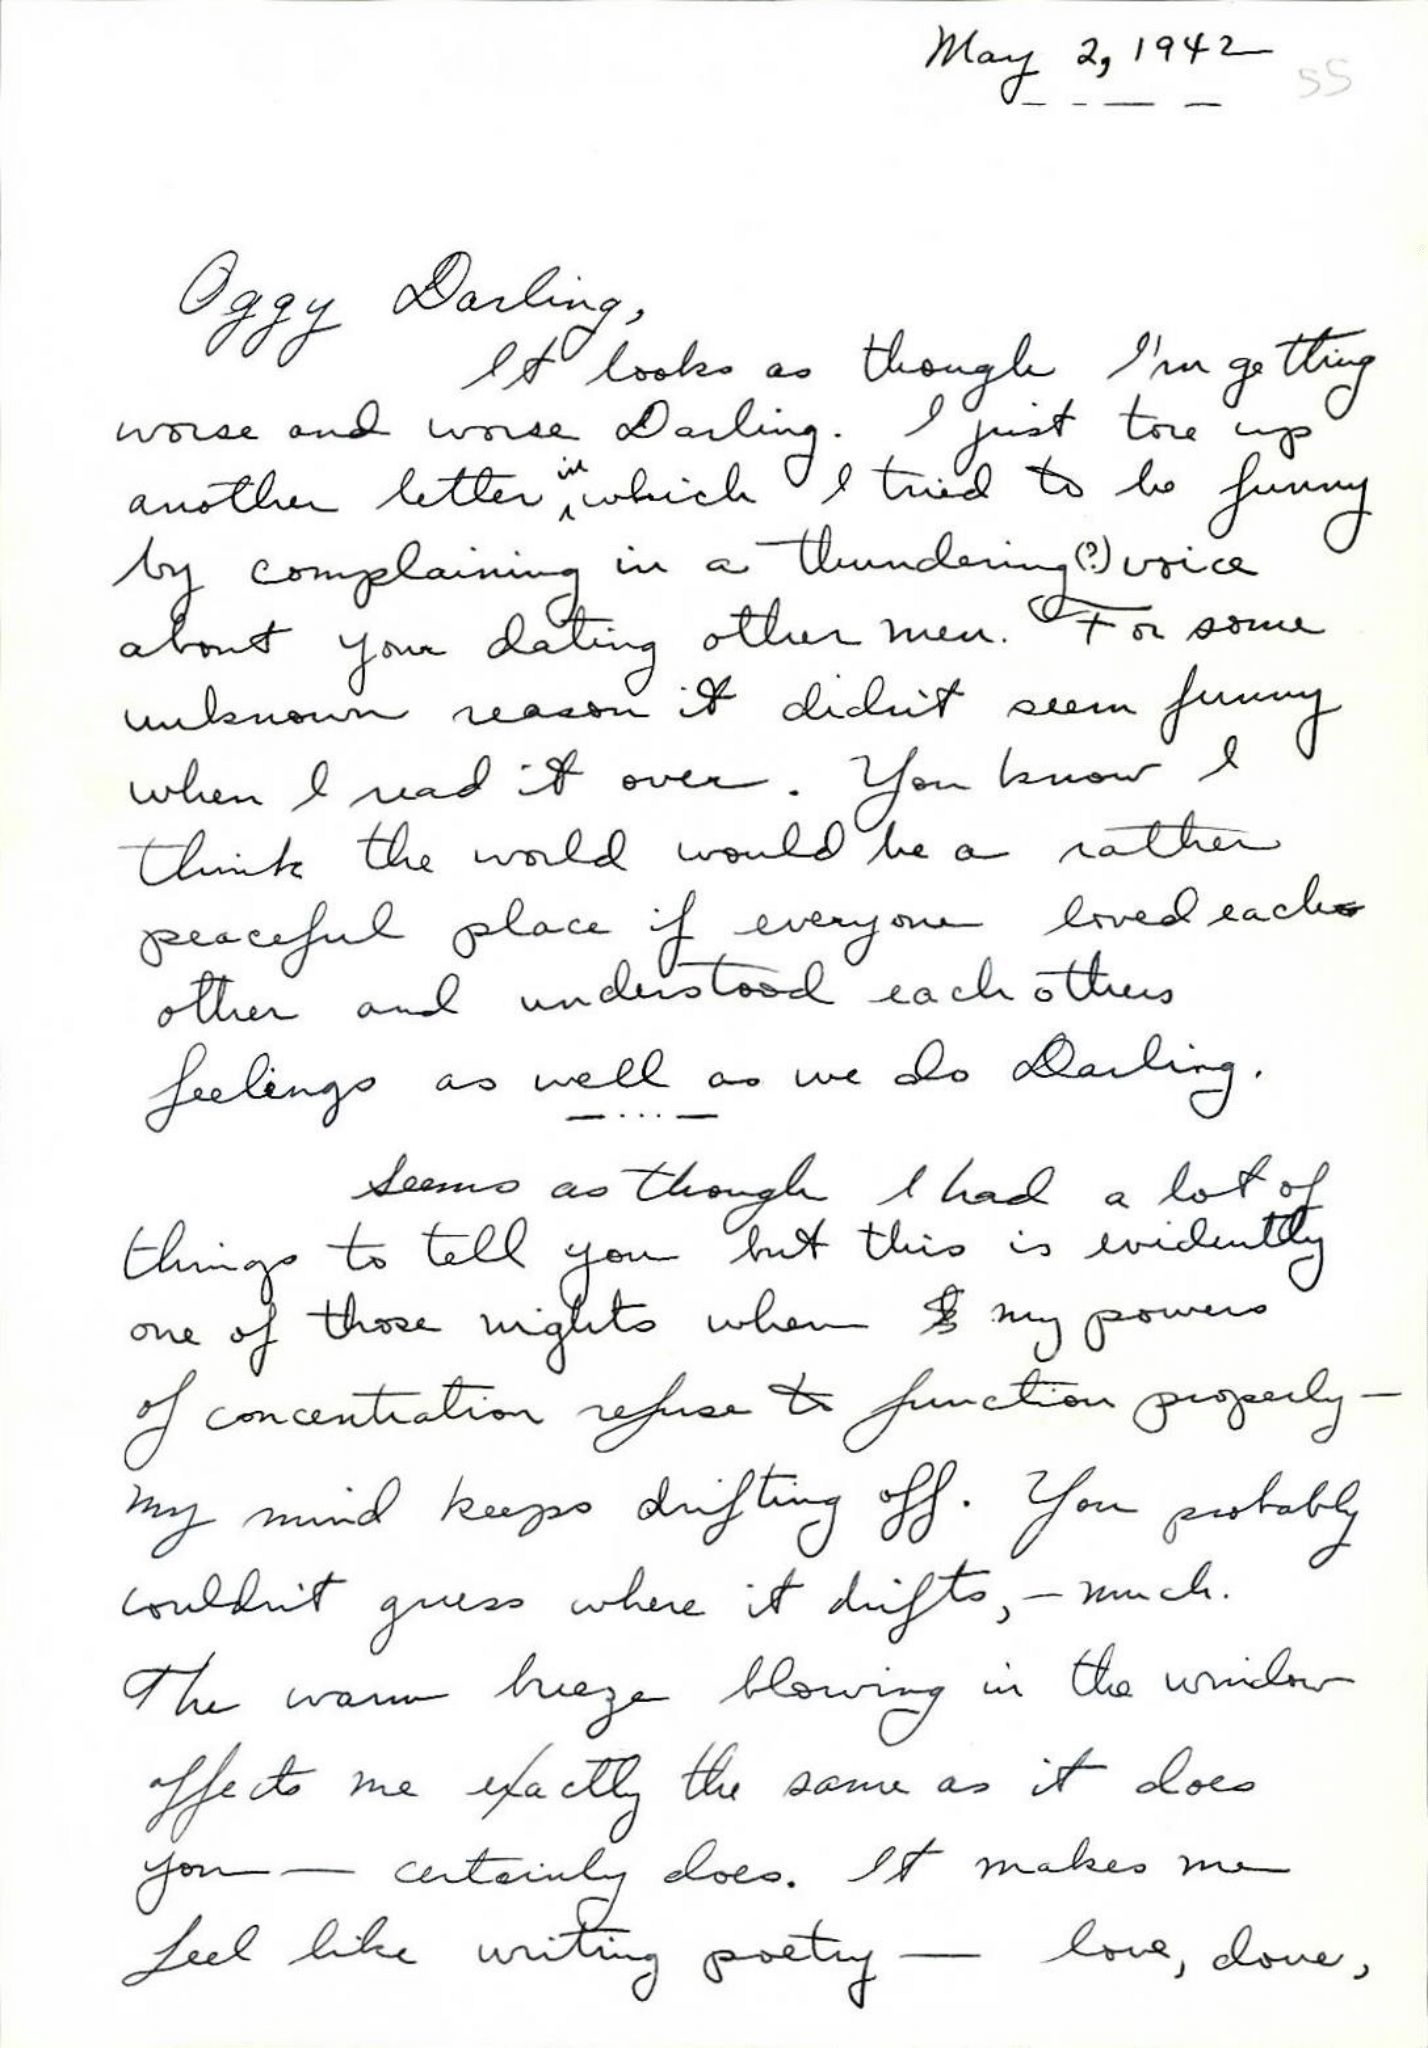 May 2, 1942
55
Oggy Darling,
It looks as though I'm getting
worse and worse Darling. I just tore up
another letter in which I tried to be funny
by complaining in a thundering(?) voice
about your dating other men. For some
unknown reason it didn't seem funny
when I read it over. You know I
think the world would be a rather
peaceful place if everyone loved each
other and understood each others
feelings as well as we do Darling.
Seems as though I had a lot of
things to tell you but this is evidently
one of those nights when my powers
of concentration refuse to function properly —
my mind keeps drifting off. You probably
couldn't guess where it drifts, — much.
The warm breeze blowing in the window
affects me exactly the same as it does
you — certainly does. It makes me
feel like writing poetry — love, dove,